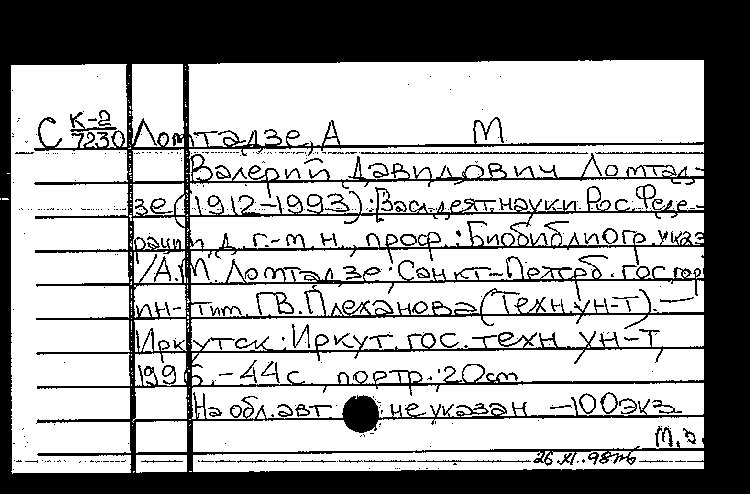 С К-2/7230 Ломтадзе, А М
Валерий Давидович Ломтад-
зе (1912-1993): [Засл. деят. науки Рос. Феде-
рации, д. г.-м. н., проф.: Биобиблиогр. указ
/А.М. Ломтадзе; Санкт-Петерб. гос. гор
ин-т им. Г.В. Плеханова (Техн. ун-т). —
Иркутск: Иркут. гос. техн. ун-т,
1996. - 44 с., портр.; 20 cm
На обл. авт не указан — 100 экз.
26.XI.98